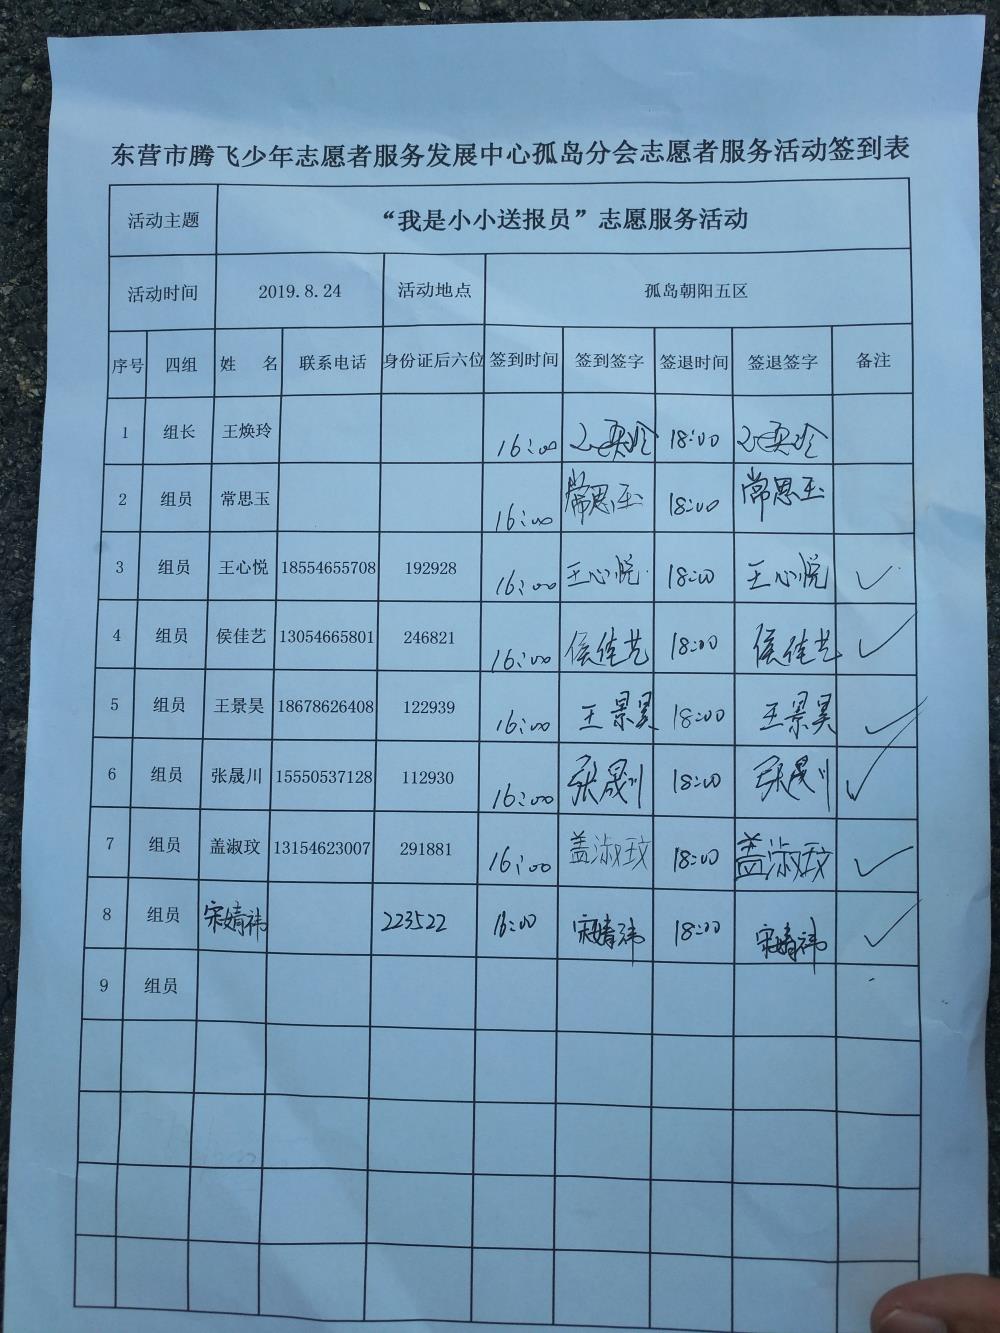 东营市腾飞少年志愿者服务发展中心孤岛分会志愿者服务活动签到表
活动主题 “我是小小送报员”志愿服务活动
活动时间 2019.8.24 活动地点 孤岛朝阳五区
序号 四组 姓 名 联系电话 身份证后六位 签到时间 签到签字 签退时间 签退签字 备注
1 组长 王焕玲 16:00 王焕玲 18:00 王焕玲
2 组员 常思玉 16:00 常思玉 18:00 常思玉
3 组员 王心悦 18554655708 192928 16:00 王心悦 18:00 王心悦 ✓
4 组员 侯佳艺 13054665801 246821 16:00 侯佳艺 18:00 侯佳艺 ✓
5 组员 王景昊 18678626408 122939 16:00 王景昊 18:00 王景昊 ✓
6 组员 张晟川 15550537128 112930 16:00 张晟川 18:00 张晟川 ✓
7 组员 盖淑玟 13154623007 291881 16:00 盖淑玟 18:00 盖淑玟 ✓
8 组员 宋婧祎 223522 16:00 宋婧祎 18:00 宋婧祎 ✓
9 组员